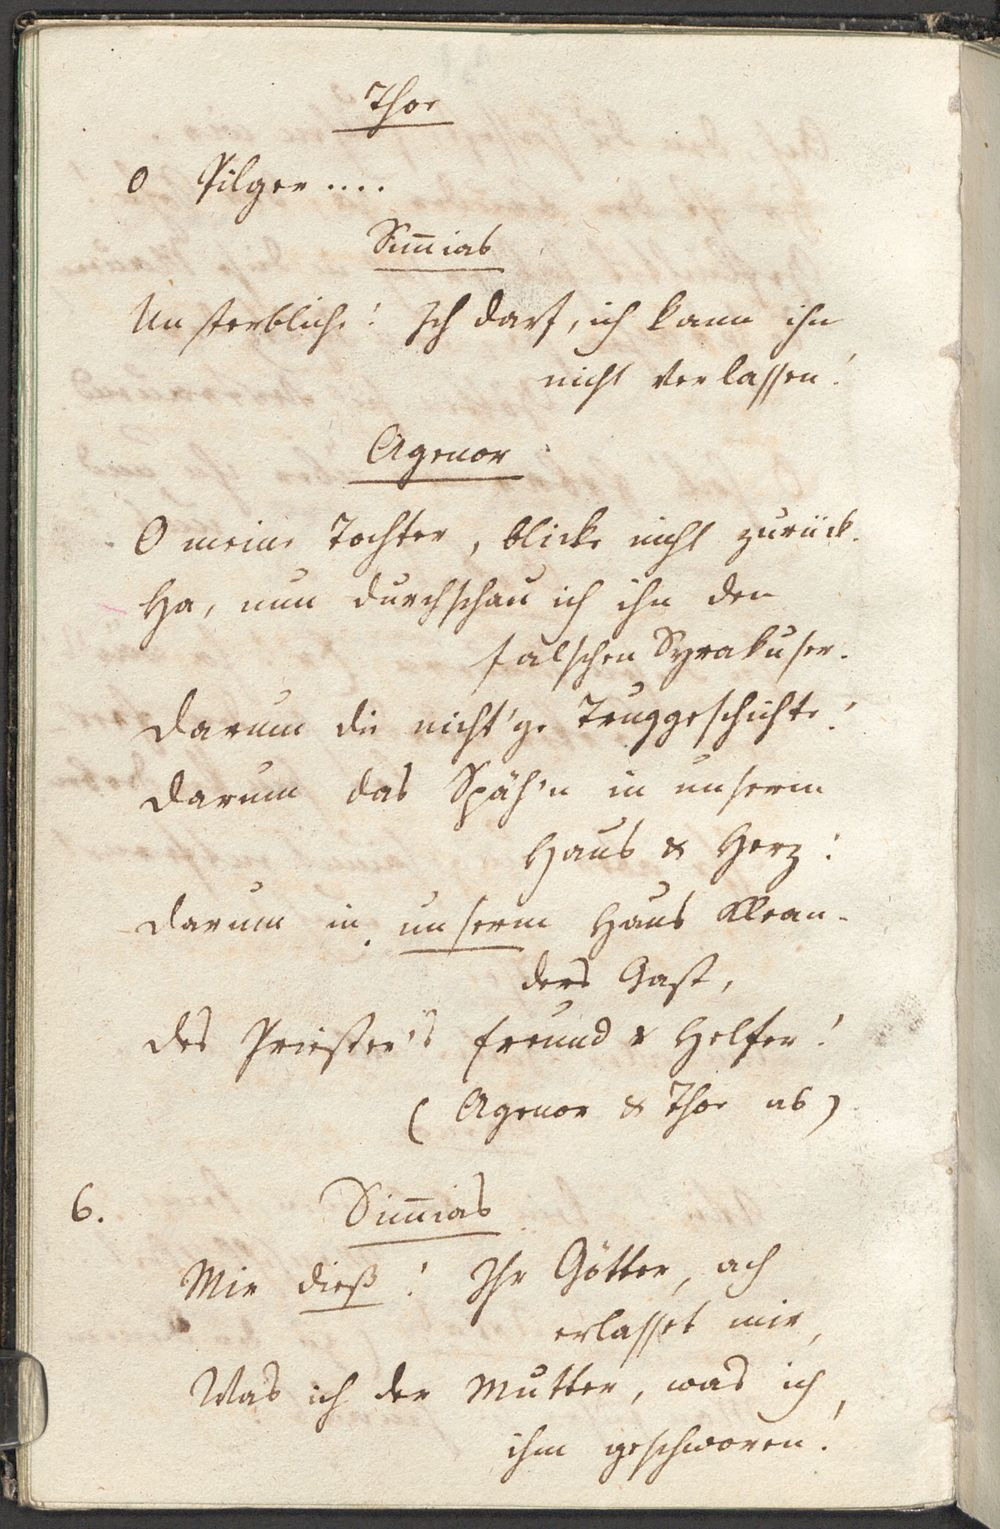 Thor
O Pilger....
Sim̅ias
Unsterbliche! Ich darf, ich kann ihn
nicht verlassen!
Agenor
O meine Tochter, blicke nicht zurück.
Ha, nun durchschau ich ihn den
falschen Syrakuser.
Darum die nicht'ge Truggeschichte!
Darum das Späh'n in unserm
Haus & Herz!
Darum in unserm Haus Klean-
ders Gast,
des Priester's Freund & Helfer!
(Agenor & Thor ab)
6. Sim̅ias
Mir dieß! Ihr Götter, ach
erlasset mir,
Was ich der Mutter, was ich,
ihm geschworen!